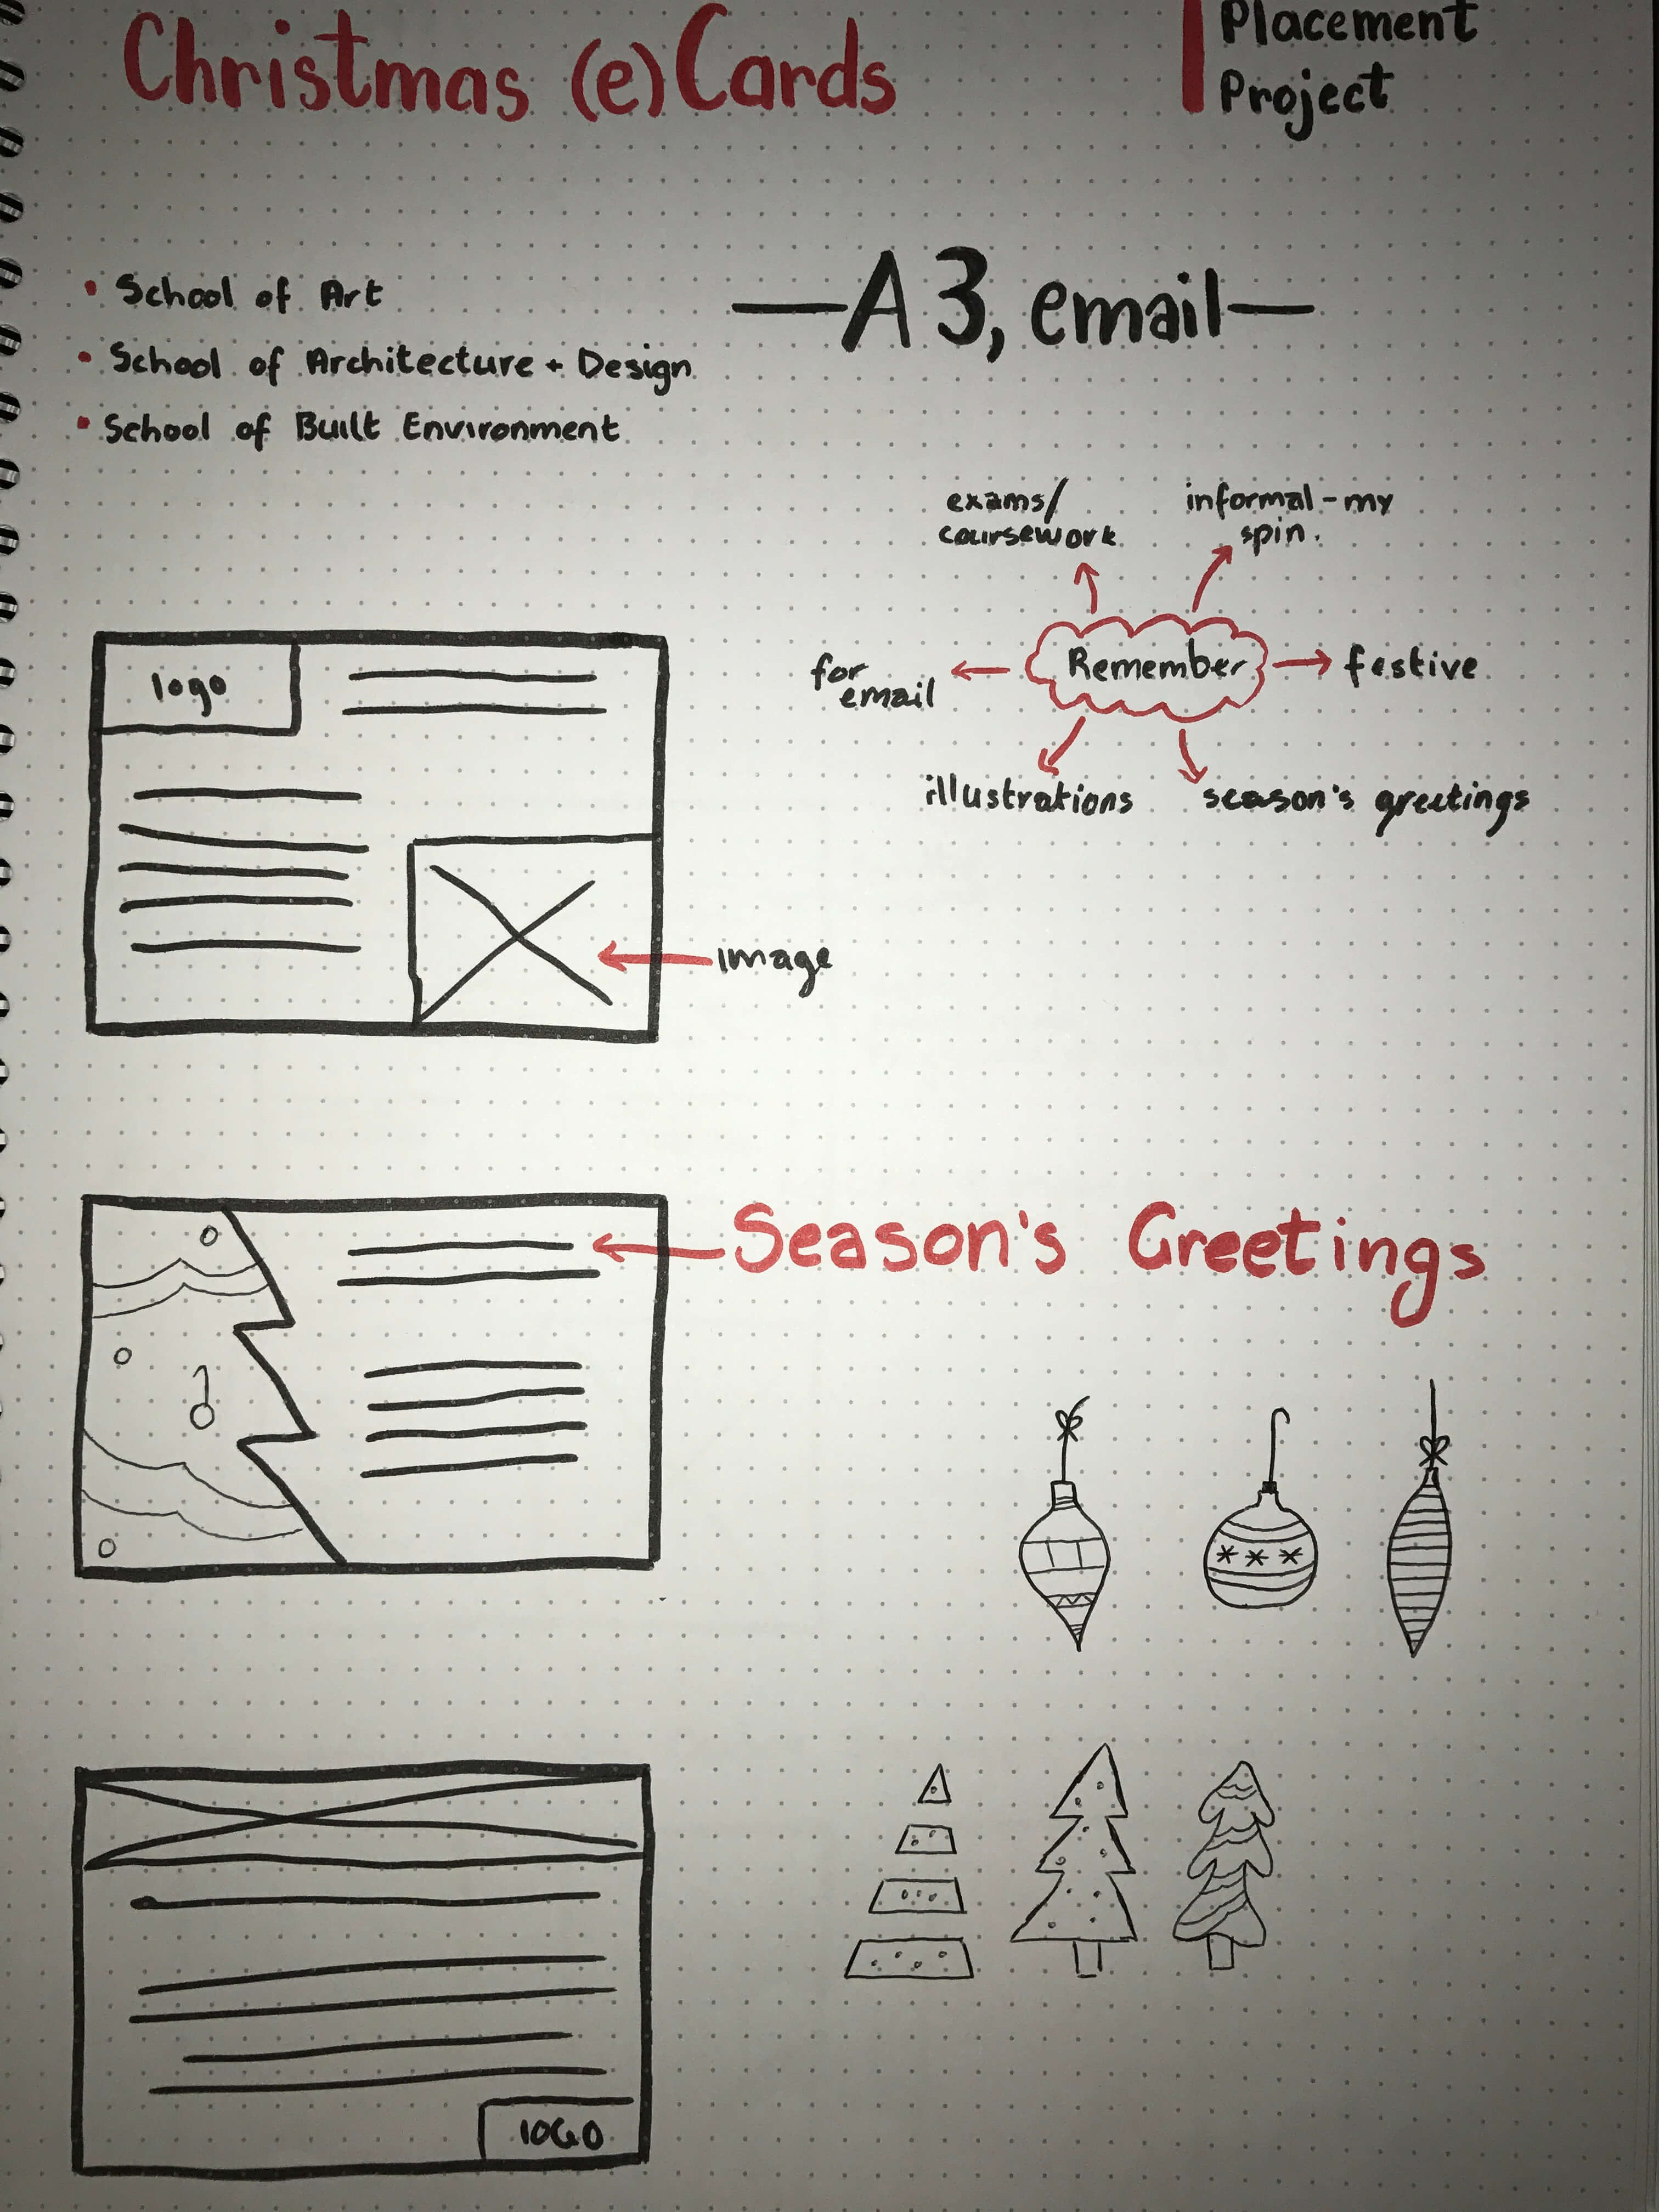 Christmas (e)Cards
Placement
Project
• School of Art
• School of Architecture + Design
• School of Built Environment
—A3, email—
exams/
coursework
informal - my
spin.
for
email
Remember
festive
illustrations
season's greetings
logo
image
Season's Greetings
LOGO